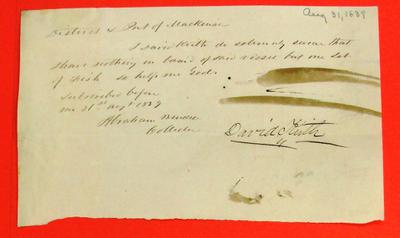 Aug 31, 1839
District & Port of Mackinac
I David Keith do solemnly swear that
I have nothing on board of said vessel but one Lot
of Fish so help me God.
Subscribed before
me 31st Augt 1839
Abraham Wendell
Collector
David Keith